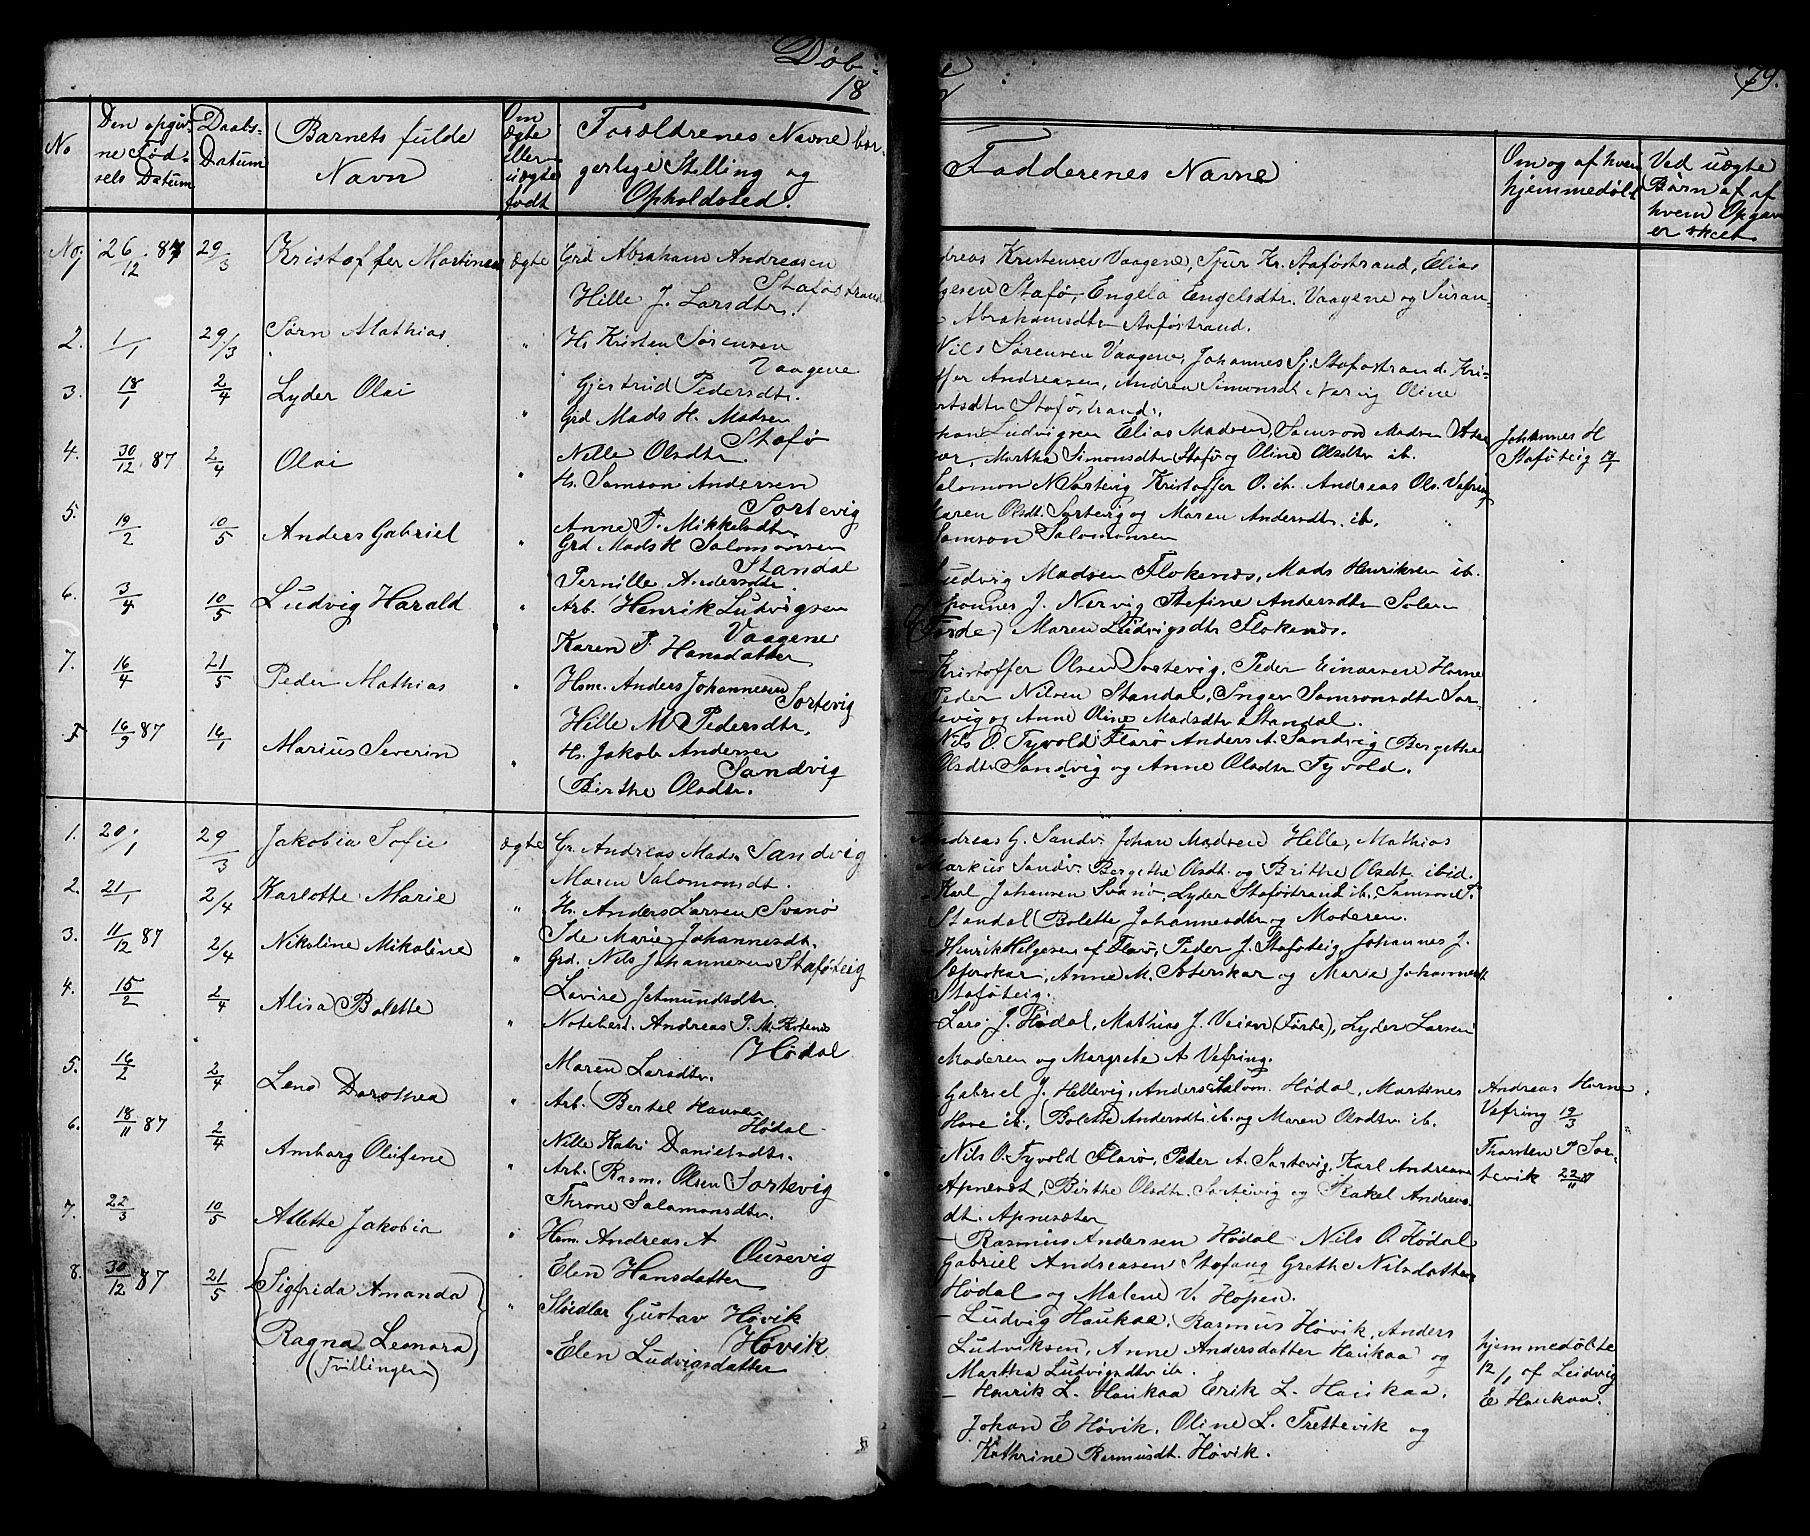 Døb
18
79.
No
Den opgiv-
ne Fød-
sels Datum
Daabs-
Datum
Barnets fulde
Navn
Om
ægte
eller
uægte
født
Forældrenes Navne bor-
gerlige Stilling og
Opholdssted.
Fadderenes Navne
Om og af hvem
hjemmedøbt
Ved uægte
Børn af af
hvem Opgav
er skeet
No 1 26/12 87 29/3 Kristoffer Martines ægte Grd Abraham Andreasen
Staføstrand
Hille J. Larsdtr.
2. 1/1 29/3 Sørn Mathias " Hs Kristen Sørensen
Vaagene
Gjertrud Pedersdtr.
3. 18/1 2/4 Lyder Olai " Grd Mads H. Madsen
Stafø
Nille Olsdtr.
4. 30/12 87 2/4 Olai " Hs. Samson Andersen
Sortevig
Anne P. Mikkelsdtr.
5. 19/2 10/5 Anders Gabriel " Grd Mads H Salomonsen
Standal
Pernille Andersdtr.
6. 3/4 10/5 Ludvig Harald " Arb. Henrik Ludvigsen
Vaagene
Karen P. Hansdatter
7. 16/4 21/5 Peder Mathias " Hsm. Anders Johannesen
Sortevig
Hille M Pedersdtr.
16/9 87 16/1 Marius Severin " Hs. Jakob Andersen
Sandvig
Birthe Olsdtr.
1. 20/1 29/3 Jakobia Sofie ægte Gr. Andreas Mads. Sandvig
Maren Salomonsdt.
2. 21/1 2/4 Karlotte Marie " Hs. Anders Larsen Svanø
Ide Marie Johannesdt.
3. 11/12 87 2/4 Nikoline Mikoline " Grd. Nils Johannesen Staføteig
Lovise Jetmundsdtr.
4. 15/2 2/4 Alisa Bolette " Notebest. Andreas P. M
Hødal
Maren Larsdtr.
5. 16/2 2/4 Lena Dorothea " Arb. Bertel Hansen
Hødal
Nille Katri Danielsdtr.
6. 18/11 87 2/4 Amborg Olufine " Arb. Rasm. Olsen Sortevig
Throne Salamonsdtr.
7. 22/3 10/5 Atlette Jakobia " Hsm. Andreas A
Ousevig
Elen Hansdatter
8. 30/12 87 21/5 Sigfrida Amanda " Gustav Høvik
Ragna Leonora Høvik
(Tvillinger) Elen Ludvigsdatter
dreas Kristensen Vaagene, Sjur Kr. Staføstrand, Elias
gesen Stafø, Engela Engelsdtr. Vaagene og Suran-
Abrahamsdtr Staføstrand.
Nils Sørensen Vaagene, Johannes Sj. Stafostrand. Kri-
ffer Andreasen, Andrea Simonsdt Nervig Oline
Staføstrand.
Ludvigsen Elias Madsen, Samson Madsen
Martha Simonsdtr Stafø og Oline Olsdtr ib.
Johannes H
Staføteig
Salomon N Sortevig Kristoffer O. ib. Andreas Ols. Vefring
Maren Olsdt. Sortevig og Maren Andersdtr. ib.
Samson Salomonsen
Ludvig Madsen Flokenes, Mads Henriksen ib.
Johannes J. Nervig Stefine Andersdtr Solen
(Førde) Maren Ludvigsdtr Flokenes.
Kristoffer Olsen Sortevig, Peder Einarsen Horne
Peder Nilsen Standal, Inger Samsonsdtr Sor-
tevig og Anne Oline Madsdtr Standal.
Nils O. Tyvold Florø Anders A. Sandvig Bergethe
Olsdtr Sandvig og Anne Olsdtr Tyvold.
Andreas G. Sandv. Johan Madsen Helle, Mathias
Markus Sandv. Bergethe Olsdt. og Brithe Olsdt. ibid.
Karl Johansen Svanø, Lyder Staføstrand ib., Samson P.
Standal Bolette Johannesdtr og Moderen.
Henrik Helgesen af Florø, Peder J. Staføteig, Johannes J.
Anne M. og Maria Johannesdt.
Staføteig.
Lars J. Hødal, Mathias J. Veien (Førde), Lyder Larsen
Moderen og Margrete A Vefring.
Gabriel J. Hellevig, Anders Salom. Hødal, Martines
Hove ib. Bolette Andersdtr. ib. og Maren Olsdtr ib.
Andreas Horne
Vefring 19/3
Nils O. Tyvold Florø, Peder A. Sortevig, Karl Andreasen
Birthe Olsdtr. Sortevig og Rakel Andreas
dt. Apnesæter
Thorsten P Sor-
tevik 22/11
Rasmus Andersen Hødal Nils O. Hødal
Gabriel Andreasen Stafang Grethe Nilsdatter
Hødal og Malene V. Hopen.
Ludvig Haukaa, Rasmus Høvik, Anders
Ludviksen, Anne Andersdatter Haukaa og
Martha Ludvigsdtr ib.
Henrik L. Haukaa Erik L. Haukaa,
Johan E Høvik, Oline L. Trettevik og
Kathrine Rasmusdt. Høvik.
hjemmedøbte
12/1 af Ludvig
E Haukaa.